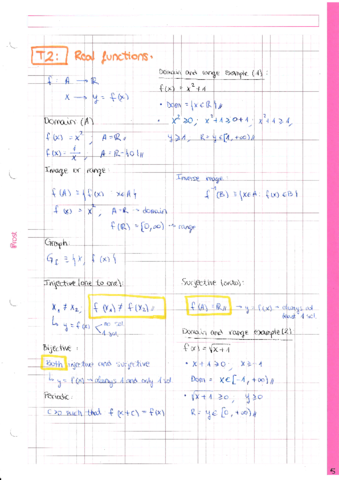 T2: Real functions.
f: A → R
x → y = f(x)
Domain (A)
f(x) = x², A = R
f(x) = 1/x, A = R - {0}
Image or range:
f(A) = {f(x) : x∈A}
f(x) = x², A = R → domain
f(R) = [0, ∞) → range
Graph:
Gf = {x, f(x)}
Injective (one to one):
x₁ ≠ x₂, f(x₁) ≠ f(x₂)
↳ y = f(x) < no sol 1 sol
Bijective:
Both injective and surjective
↳ y = f(x) → always 1 and only 1 sol
Periodic:
C>0 such that f(x+c) = f(x)
Domain and range example (1):
f(x) = x² + 1
• Dom = {x∈R}
• x² ≥ 0, x² + 1 ≥ 0 + 1, x² + 1 ≥ 1,
y ≥ 1, R = y∈[1, +∞)
Inverse image:
f⁻¹(B) = {x∈A : f(x)∈B}
Surjective (onto):
f(A) = R → y = f(x) → always at least 1 sol.
Domain and range example (2)
f(x) = √x+1
• x + 1 ≥ 0, x ≥ -1
Dom = x∈[-1, +∞)
• √x+1 ≥ 0, y ≥ 0
R = y∈[0, +∞)